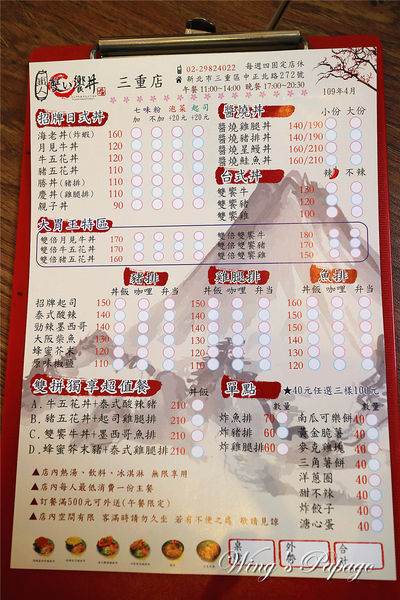 職人 雙い饗丼 三重店
02-29824022 每週四固定店休
新北市三重區中正北路272號
午餐11:00~14:00 晚餐17:00~20:30
109年4月
招牌日式丼 七味粉 泡菜 起司
加 不加 +20元 +20元
海老丼(炸蝦) 160
月見牛丼 120
牛五花丼 110
豬五花丼 110
勝丼(豬排) 110
慶丼(雞腿排) 110
親子丼 90
醬燒丼 小份 大份
醬燒雞腿丼 140/190
醬燒豬排丼 140/190
醬燒星鰻丼 140
醬燒鮭魚丼 140
台式丼 辣 不辣
雙饗牛 130
雙饗豬 130
雙饗雞 130
大胃王特區
雙倍月見牛丼 170
雙倍牛五花丼 160
雙倍豬五花丼 160
雙倍雙饗牛 180
雙倍雙饗豬 180
雙倍雙饗雞 150
豬排 雞腿排 魚排
丼飯 咖哩 弁当 丼飯 咖哩 弁当 丼飯 咖哩 弁当
招牌起司 150 150 160
泰式酸辣
勁辣墨西哥
大阪柴魚
蜂蜜芥末
原味椒鹽 120 120 140
雙拼獨享超值餐 丼飯
A. 牛五花丼+泰式酸辣豬 210
B. 豬五花丼+起司雞腿排 210
C. 雙饗牛丼+墨西哥魚排 210
D. 蜂蜜芥末豬+泰式雞腿排 210
單點 ★40元任選三樣100元
數量 數量
炸魚排 70
炸豬排 60
炸雞排 60
南瓜可樂餅 40
黃金脆薯 40
麥克雞塊 40
三角薯餅 40
洋蔥圈 40
甜不辣 40
炸餃子 40
溏心蛋 40
▲店內熱湯、飲料、冰淇淋 無限享用
▲店內每人最低消費一份主餐
▲訂餐滿500元可外送(午餐限定)
▲店內空間有限 客滿時請勿久坐 若有不便之處 敬請見諒
桌號 外帶 合計
Wing's Papago